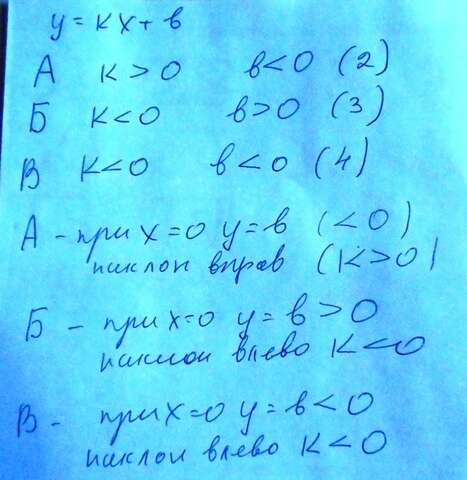 y = kx + в
А k > 0 в < 0 (2)
Б k < 0 в > 0 (3)
В k < 0 в < 0 (4)
А - при x = 0 y = в (< 0)
наклон вправ (k > 0)
Б - при x = 0 y = в > 0
наклон влево k < 0
В - при x = 0 y = в < 0
наклон влево k < 0